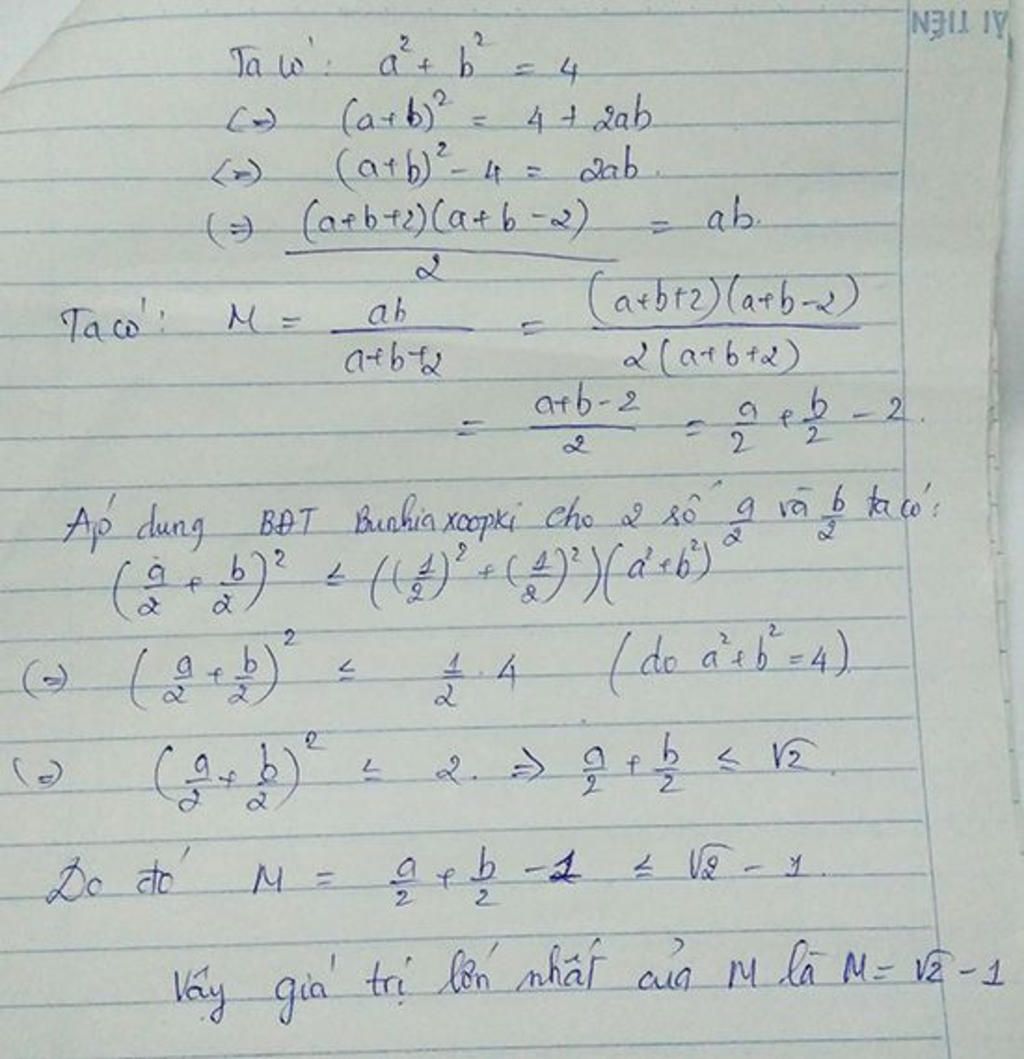 ẢI TIẾN
Ta có: a² + b² = 4
(=) (a+b)² = 4 + 2ab
(=) (a+b)² - 4 = 2ab.
(=) (a+b+2)(a+b-2)/2 = ab.
Ta có: M = ab/(a+b+2) = (a+b+2)(a+b-2)/2(a+b+2)
= (a+b-2)/2 = a/2 + b/2 - 2.
Áp dung BĐT Bunhiaxoopki cho 2 số a/2 và b/2 ta có:
(a/2 + b/2)² ≤ ((1/2)² + (1/2)²)(a²+b²)
(=) (a/2 + b/2)² ≤ 1/2 . 4 (do a²+b²=4)
(=) (a/2 + b/2)² ≤ 2. => a/2 + b/2 ≤ √2.
Do đó M = a/2 + b/2 - 1 ≤ √2 - 1.
Vậy giá trị lớn nhất của M là M = √2 - 1